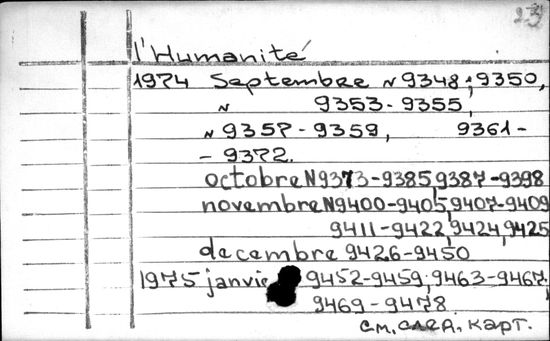 23
l'Humanité
1974 Septembre N 9348; 9350,
N 9353-9355,
N 9357-9359, 9361-
- 9372.
octobre N9373-9385, 9387-9398
novembre N9400-9405, 9407-9409
9411-9422, 9424, 9425
decembre 9426-9450
1975 janvie 9452-9459; 9463-9467.
9469-9478
См. след. карт.